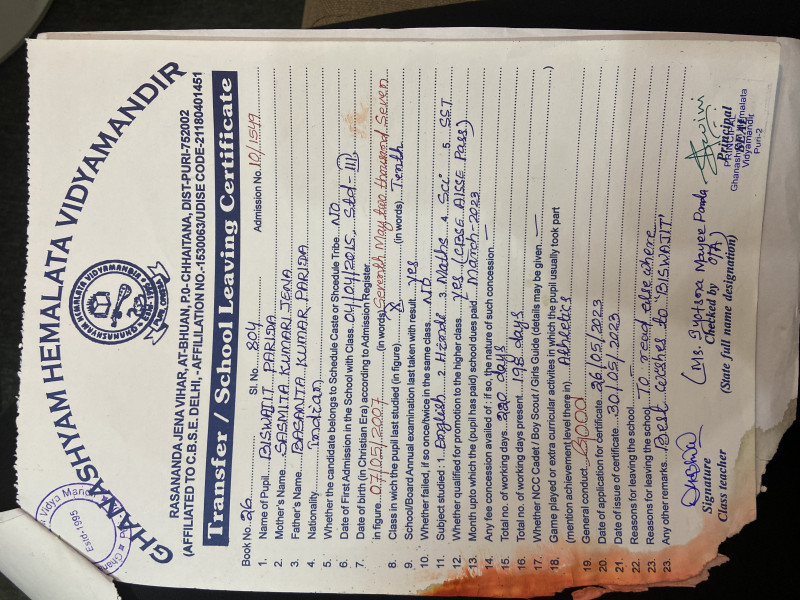 GHANASHYAM HEMALATA VIDYAMANDIR
RASANANDA JENA VIHAR, AT-BHUAN, P.O-CHHAITANA, DIST-PURI-752002
(AFFILIATED TO C.B.S.E. DELHI, - AFFILIATION NO.-1530063/UDISE CODE-21180401451
Transfer / School Leaving Certificate
Book No. 26 Sl. No. 804 Admission No. 10/1549
1. Name of Pupil BISWAJIT PARIDA
2. Mother's Name SASMITA KUMARI JENA
3. Father's Name BASANTA KUMAR PARIDA
4. Nationality Indian
5. Whether the candidate belongs to Schedule Caste or Shcedule Tribe NO
6. Date of First Admission in the School with Class 04/04/2015, Std-III
7. Date of birth (in Christian Era) according to Admission Register
in figure 07/05/2007 (in words) Seventh May two thousand Seven
8. Class in which the pupil last studied (in figure) X (in words) Tenth
9. School/Board Annual examination last taken with result yes
10. Whether failed, if so once/twice in the same class NO
11. Subject studied : 1. English 2. Hindi 3. Maths 4. Sci 5. SST
12. Whether qualified for promotion to the higher class yes (CBSE AISSE Pass)
13. Month upto which the (pupil has paid) school dues paid March-2023
14. Any fee concession availed of : if so, the nature of such concession —
15. Total no. of working days 220 days
16. Total no. of working days present 198 days
17. Whether NCC Cadet / Boy Scout / Girls Guide (details may be given —
18. Game played or extra curricular activites in which the pupil usually took part
(mention achievement level there in) Athletics )
19. General conduct Good
20. Date of application for certificate 26/05/2023
21. Date of issue of certificate 30/05/2023
22. Reasons for leaving the school —
23. Reasons for leaving the school To read elsewhere
23. Any other remarks Best wishes to 'BISWAJIT'
Signature
Class teacher
Checked by
(State full name designation)
Principal
SEAL
PRINCIPAL
Ghanashyam Hemalata
Vidyamandir
Puri-2
Estd-1995